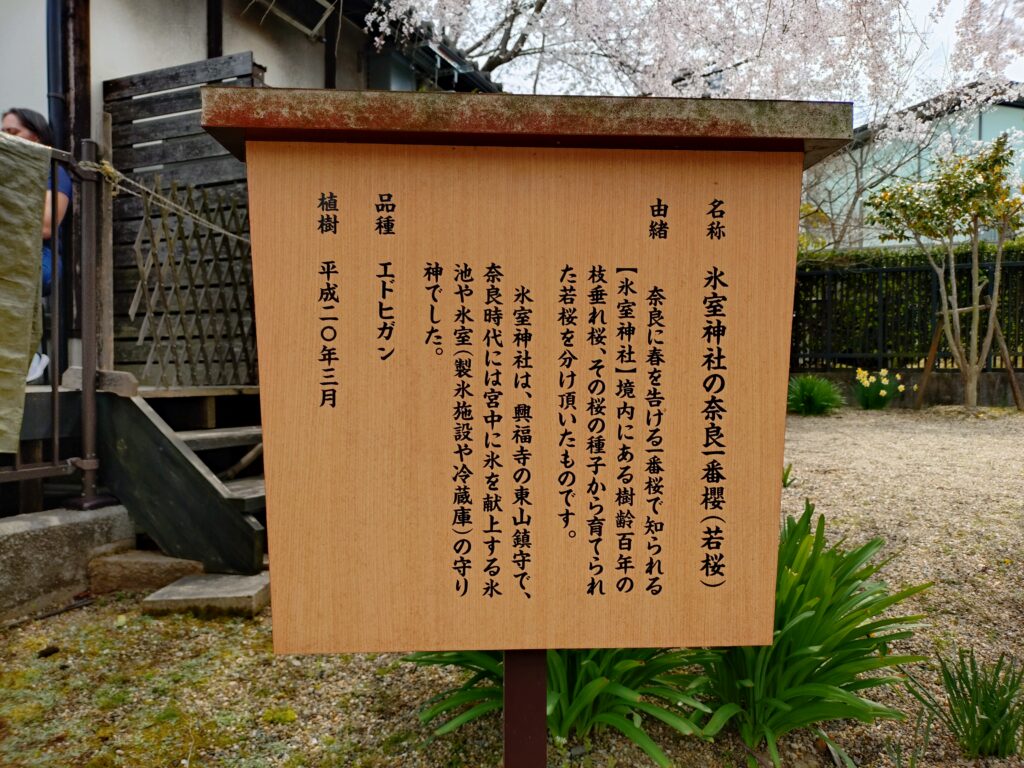 名称 氷室神社の奈良一番櫻(若桜)
由緒
奈良に春を告げる一番桜で知られる
【氷室神社】境内にある樹齢百年の
枝垂れ桜、その桜の種子から育てられ
た若桜を分け頂いたものです。
氷室神社は、興福寺の東山鎮守で、
奈良時代には宮中に氷を献上する氷
池や氷室(製氷施設や冷蔵庫)の守り
神でした。
品種 エドヒガン
植樹 平成二〇年三月